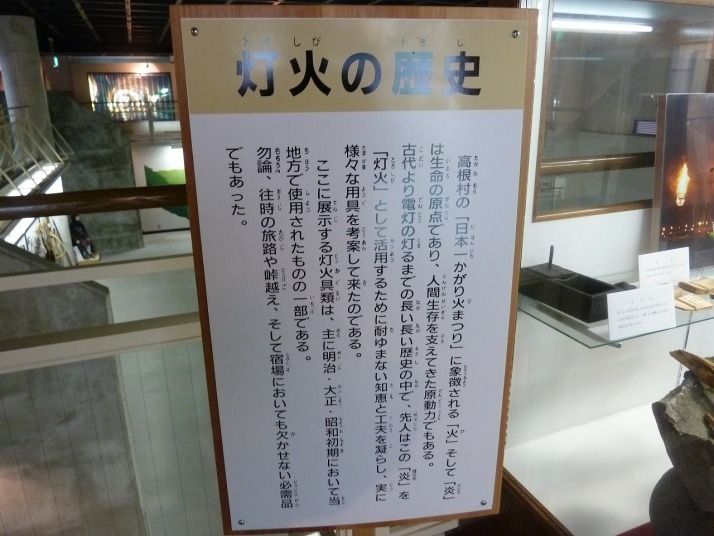 灯火の歴史
高根村の「日本一かがり火まつり」に象徴される「火」そして「炎」
は生命の原点であり、人間生存を支えてきた原動力でもある。
古代より電灯の灯るまでの長い長い歴史の中で、先人はこの「炎」を
「灯火」として活用するために耐ゆまない知恵と工夫を凝らし、実に
様々な用具を考案して来たのである。
ここに展示する灯火具類は、主に明治・大正・昭和初期において当
地方で使用されたものの一部である。
勿論、往時の旅路や峠越え、そして宿場においても欠かせない必需品
でもあった。